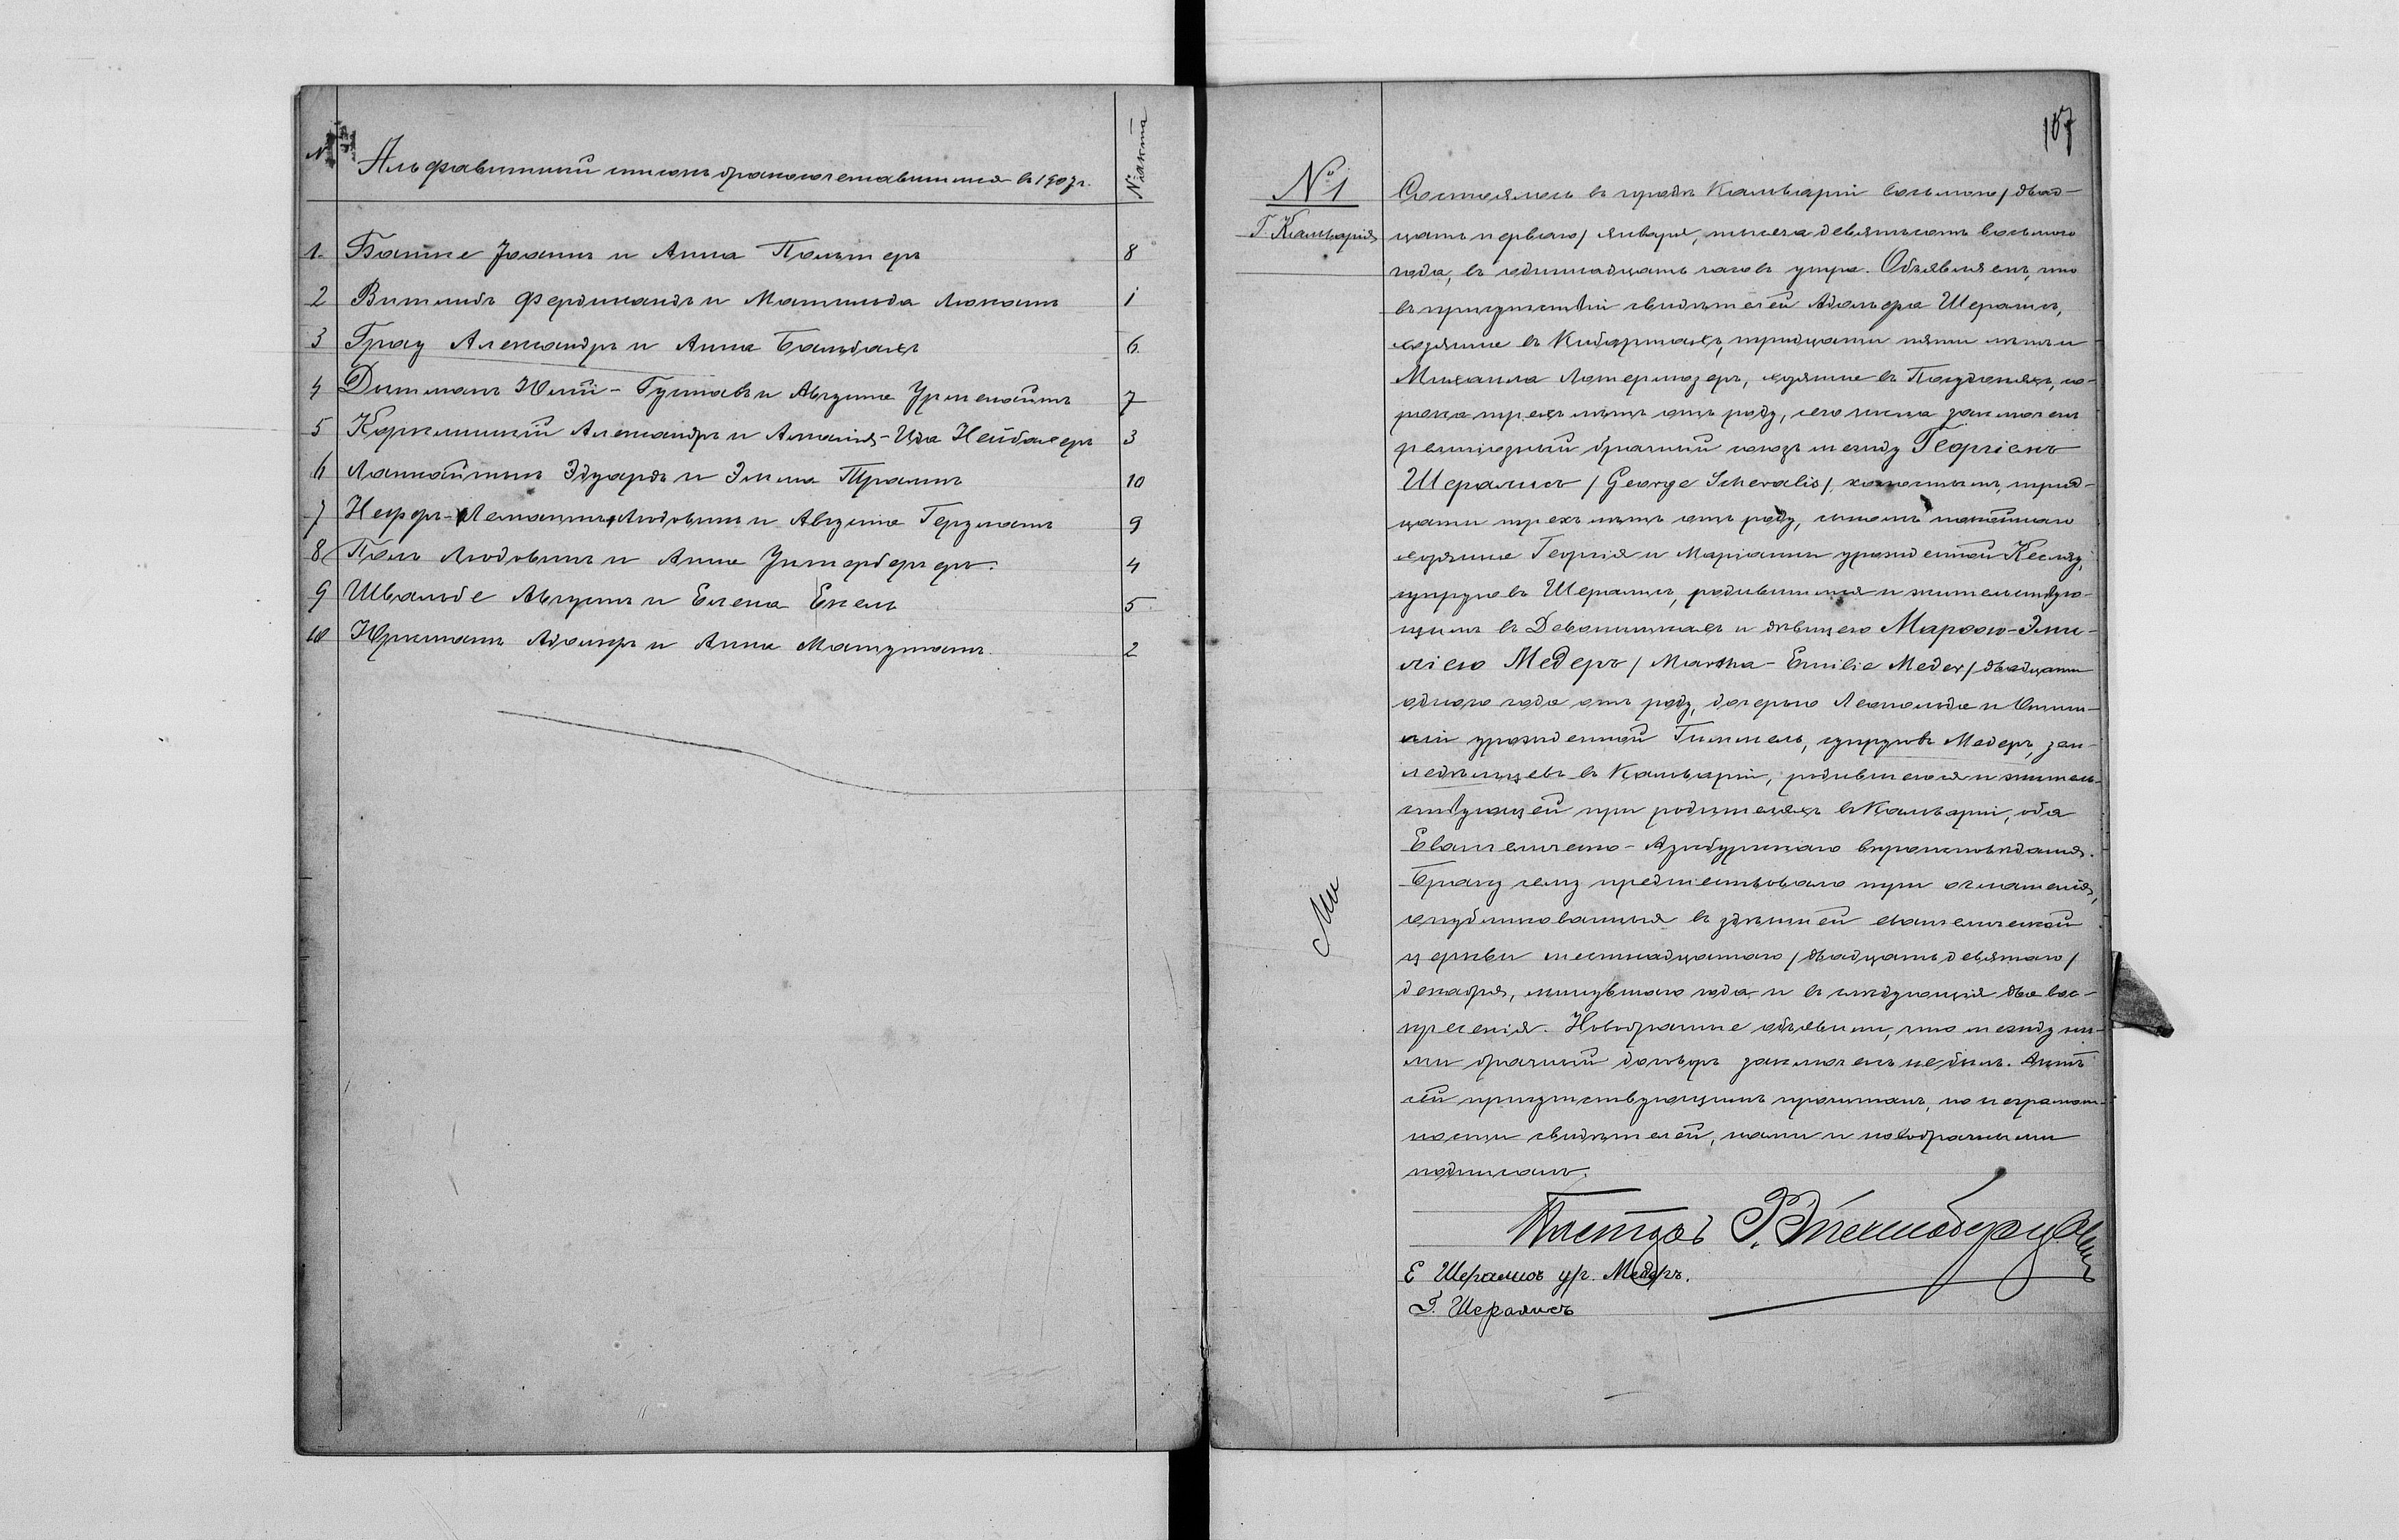 № Альфавитный списокъ бракосочетавшихся въ 1907 г. № акта
1. Банше Іоаннъ и Анна Польтеръ 8
2 Витлибъ Фердинандъ и Матильда Локатъ 1
3 Грау Александръ и Анна Бальбахъ 6
4 Дитманъ Юлій-Густавъ и Августа 7
5 Александръ и Амалія-Ида Нейбахеръ 3
6 Эдуардъ и Эмма 10
7 Людовикъ и Августа Герцманъ 9
8 Поль Людовикъ и Анна Унтербергеръ. 4
9 Швальбе Августъ и Елена Екель 5
10 Юркшатъ Адольфъ и Анна 2
107
№ 1
Г. Кальварія
Состоялось въ городѣ Кальваріи восьмого /двад-
цать перваго/ января, тысяча девятьсотъ восьмого
года, въ одиннадцать часовъ утра. Объявляемъ, что
въ присутствіи свидѣтелей Адольфа Шералисъ,
хозяина въ Кибартахъ, тридцати пяти лѣтъ и
Михаила хозяина въ со-
рока трехъ лѣтъ отъ роду, сего числа заключенъ
религіозный брачный союзъ между Георгіемъ
Шералисъ /George Scheralis/, холостымъ, трид-
цати трехъ лѣтъ отъ роду, сыномъ покойнаго
хозяина Георгія и Маріанны урожденной
супруговъ Шералисъ, родившимся и жительствую-
щимъ въ и дѣвицею Марѳою-Эми-
ліею Медеръ /Martha-Emilie Meder/ двадцати
одного года отъ роду, дочерью Леопольда и Оти-
ліи урожденной Гиммель, супруговъ Медеръ, зем-
ледѣльцевъ въ Кальваріи, родившеюся и житель-
ствующей при родителяхъ въ Кальваріи, оба
Евангелическо-Аугсбургскаго вѣроисповѣданія.
Браку сему предшествовало три оглашенія,
опубликованныя въ здѣшней евангелической
церкви шестнадцатаго /двадцать девятаго/
декабря, минувшаго года и въ слѣдующія два вос-
кресенія. Новобрачные объявили, что между ни-
ми брачный договоръ заключенъ не былъ. Актъ
сей присутствующимъ прочитанъ, по неграмот-
ности свидѣтелей, нами и новобрачными
подписанъ.
Пасторъ
Е Шералисъ ур. Медеръ.
Г. Шералисъ